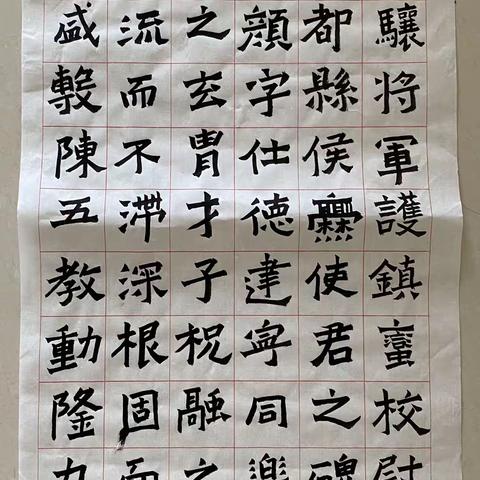 驤将軍護鎮蠻校尉
都縣侯爨使君之碑
顔字仕德建寧同樂
之玄胄才子祝融之
流而不滯深根固而
盛敷陳五教動隆九